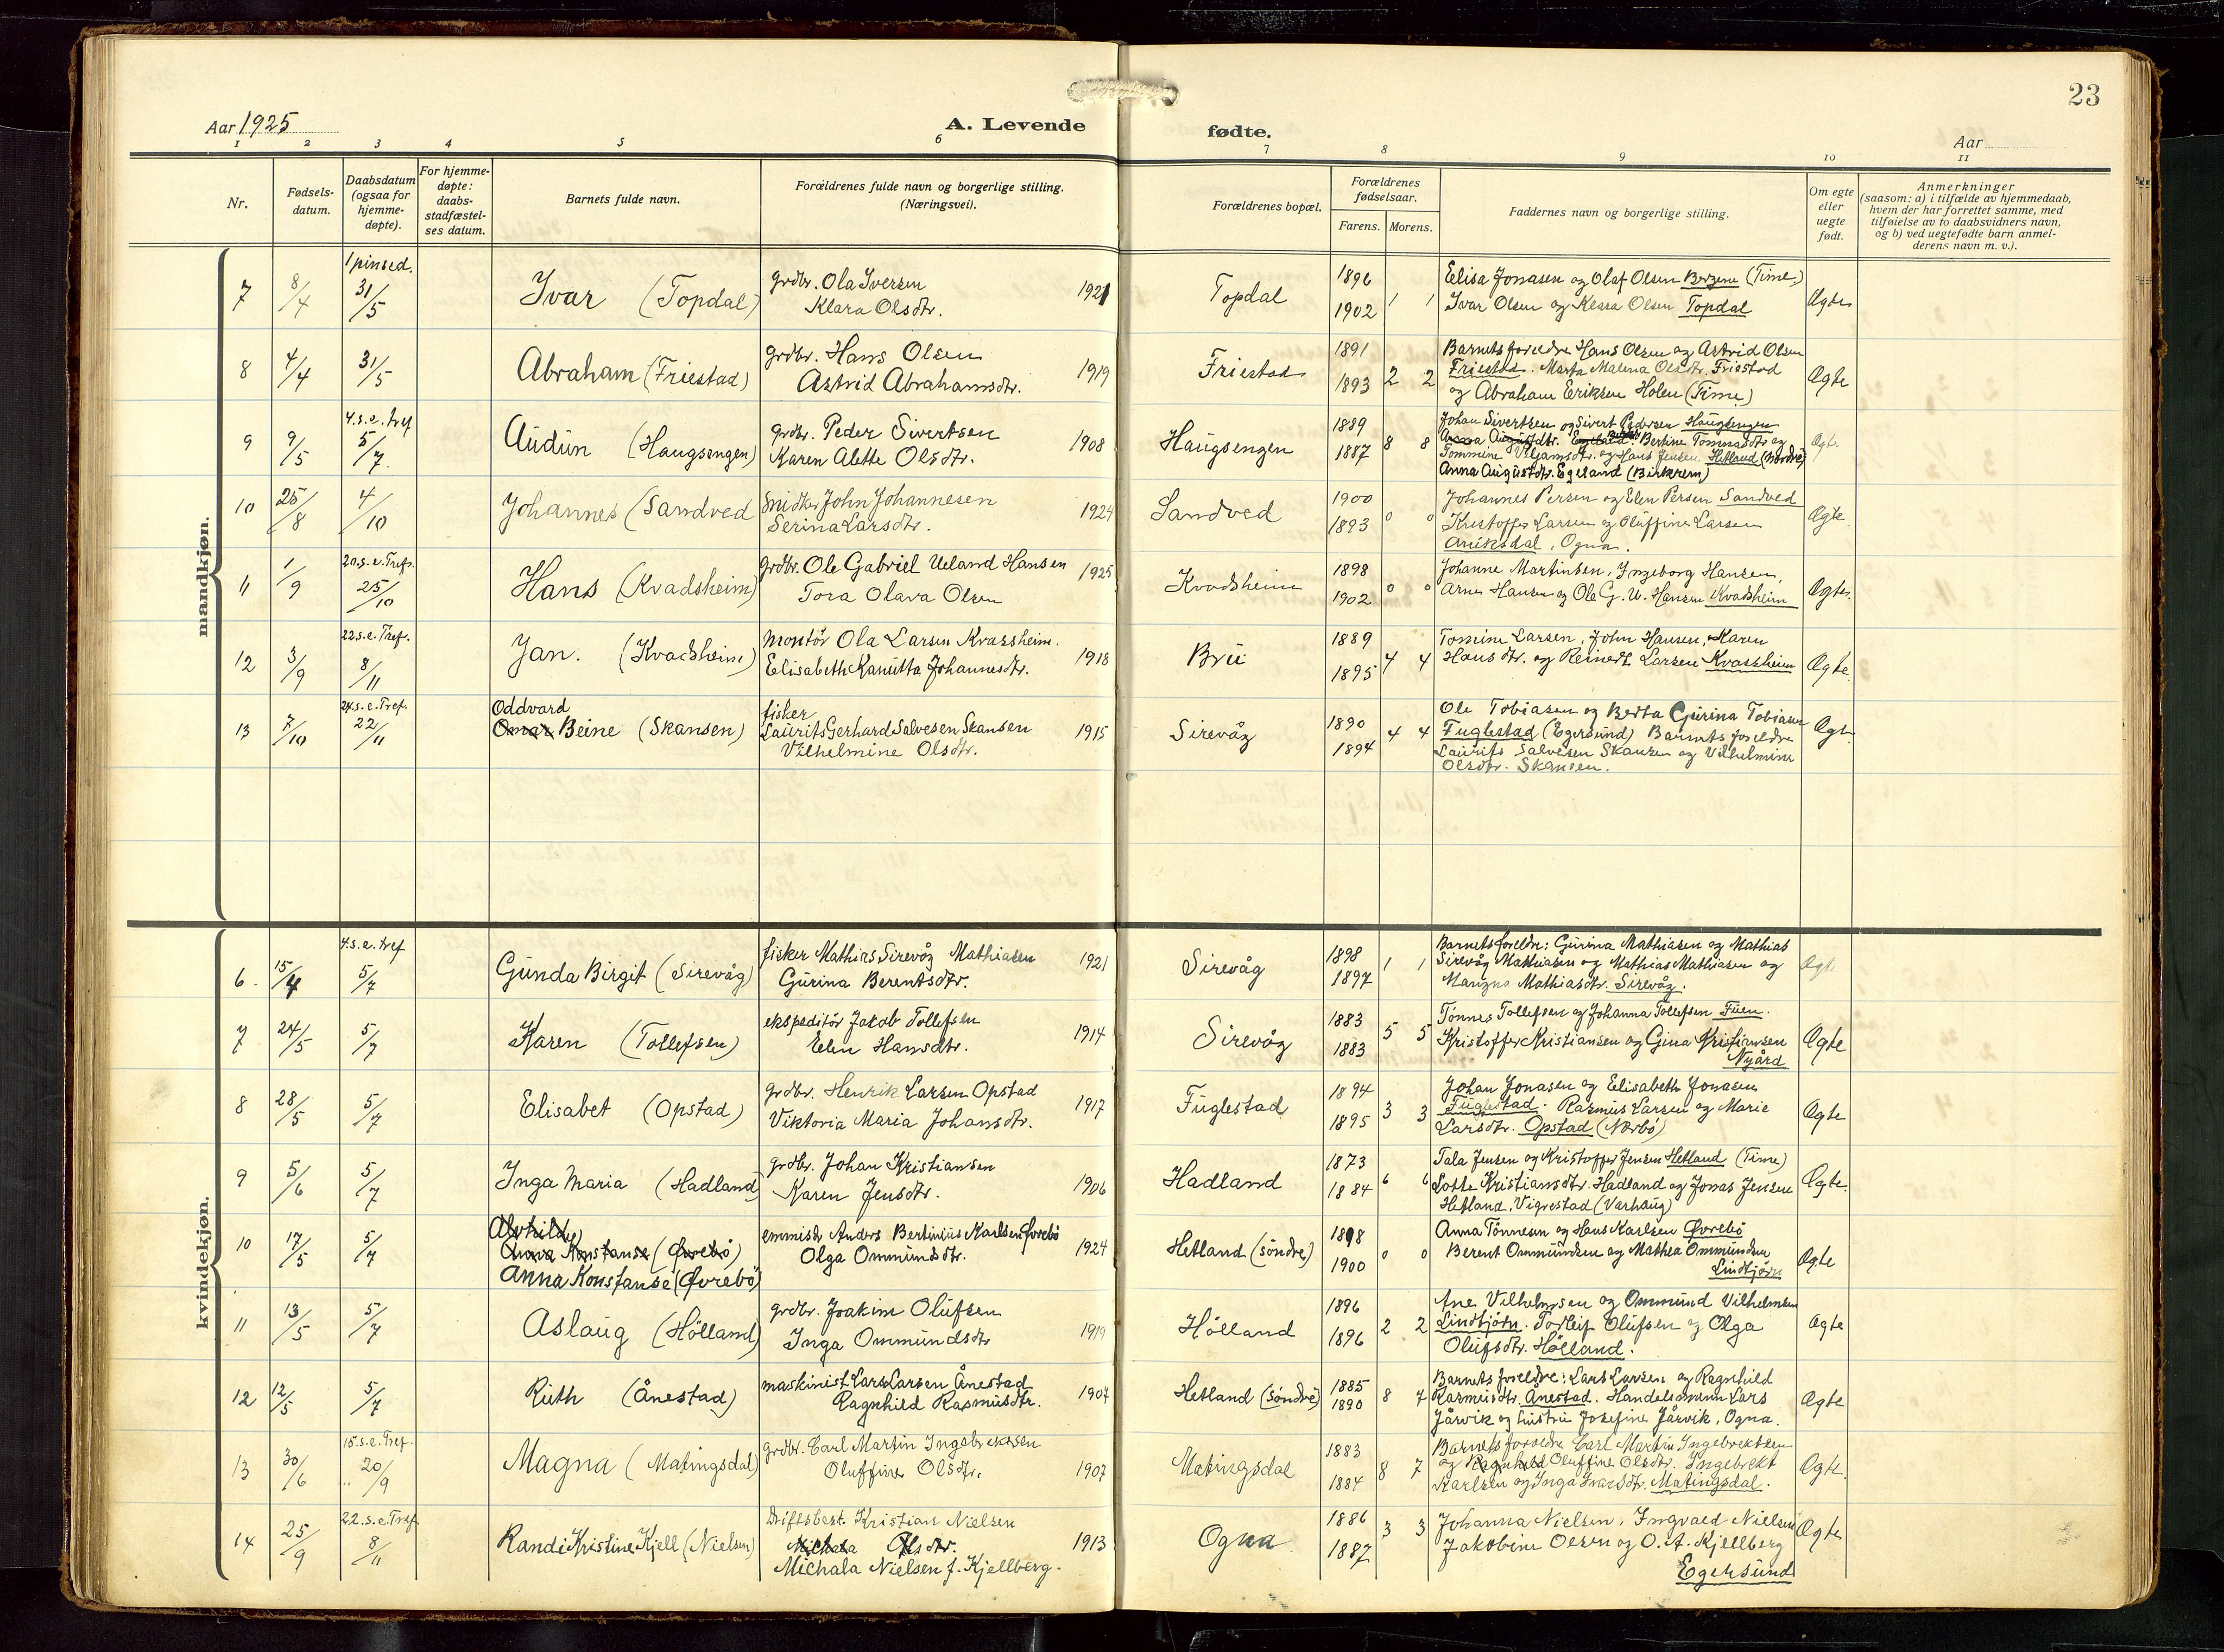 23
Aar 1925
A. Levende
fødte.
Aar
1 2 3 4 5 6 7 8 9 10 11
Nr.
Fødsels-
datum.
Daabsdatum
(ogsaa for
hjemme-
døpte).
For hjemme-
døpte:
daabs-
stadfæstel-
ses datum.
Barnets fulde navn.
Forældrenes fulde navn og borgerlige stilling.
(Næringsvei).
Forældrenes bopæl.
Forældrenes
fødselsaar.
Farens. Morens.
Faddernes navn og borgerlige stilling.
Om egte
eller
uegte
født.
Anmerkninger
(saasom: a) i tilfælde av hjemmedaab,
hvem der har forrettet samme, med
tilføielse av to daabsvidners navn,
og b) ved uegtefødte barn anmel-
derens navn m. v.).
mandkjøn.
1 pinsed.
7 8/4 31/5 Ivar (Topdal)
grdbr. Ola Iversen
Klara Olsdtr. 1921
Topdal 1896
1902 1 1
Elisa Jonasen og Olaf Olsen (Time)
Ivar Olsen og Klara Olsen Topdal
Ægte
8 4/4 31/5 Abraham (Friestad)
grdbr. Hans Olsen
Astrid Abrahamsdtr. 1919
Friestad 1891
1893 2 2
Barnets foreldre Hans Olsen og Astrid Olsen
Friestad. Marta Malena Olsdtr. Friestad
og Abraham Eriksen Holen (Time)
Ægte
4.s.e.tref
9 9/5 5/7 Audun (Haugsengen)
grdbr. Peder Sivertsen
Karen Alette Olsdtr. 1908
Haugsengen 1889
1887 8 8
Johan Sivertsen og Sivert Pedersen Haugsengen
Anna Augustdtr. Egeland. Bertine Tommasdtr og
Tommine Viljamsdtr. og Hans Jensen Hetland (Nordre)
Anna Augustdtr. Egeland (Birkrem)
Ægte
10 25/8 4/10 Johannes (Sandved
John Johannesen
Serina Larsdtr. 1924
Sandved 1900
1893 0 0
Johannes Persen og Elen Persen Sandved
Kristoffer Larsen og Oluffine Larsen
Aniksdal, Ogna.
Ægte
20.s.e.Tref.
11 1/9 25/10 Hans (Kvadsheim)
grdbr. Ole Gabriel Ueland Hansen
Tora Olava Olsen 1925
Kvadsheim 1898
1902 0 0
Johanne Martinsen, Ingeborg Hansen,
Arne Hansen og Ole G. U. Hansen Kvadsheim
Ægte
22.s.e.Tref.
12 3/9 8/11 Jan. (Kvadsheim)
Montör Ola Larsen Kvassheim.
Elisabeth Kanutta Johannesdtr. 1918
Bru 1889
1895 4 4
Tomine Larsen, John Hansen, Karen
Hansdtr. og Reinert Larsen Kvassheim
Ægte
24.s.e.Tref.
13 7/10 22/11 Oddvard
Omar Beine (Skansen)
fisker
Laurits Gerhard Salvesen Skansen
Vilhelmine Olsdtr. 1915
Sirevåg 1890
1894 4 4
Ole Tobiasen og Berta Gurina Tobiasen
Fuglestad (Egersund) Barnets foreldre
Laurits Salvesen Skansen og Vilhelmine
Olsdtr. Skansen.
Ægte
kvindekjøn.
4.s.e.tref
6 15/4 5/7 Gunda Birgit (Sirevåg)
fisker Mathias Sirevåg Mathiasen
Gurina Berentsdtr. 1921
Sirevåg 1898
1897 1 1
Barnets foreldre: Gurina Mathiasen og Mathias
Sirevåg Mathiasen og Mathias Mathiasen og
Mathiasdtr. Sirevåg.
Ægte
7 24/5 5/7 Karen (Tollefsen)
ekspeditör Jakob Tollefsen
Elen Hansdtr. 1914
Sirevåg 1883
1883 5 5
Tönnes Tollefsen og Johanna Tollefsen Fuen.
Kristoffer Kristiansen og Gina Kristiansen
Nygård
Ægte
8 28/5 5/7 Elisabet (Opstad)
grdbr. Henrik Larsen Opstad
Viktoria Maria Johansdtr. 1917
Fuglestad 1894
1895 3 3
Johan Jonasen og Elisabeth Jonasen
Fuglestad. Rasmus Larsen og Marie
Larsdtr. Opstad (Nærbö)
Ægte
9 5/6 5/7 Inga Maria (Hadland)
grdbr. Johan Kristiansen
Karen Jensdtr. 1906
Hadland 1873
1884 6 6
Tala Jensen og Kristoffer Jensen Hetland (Time)
Lotte Kristiansdtr. Hadland og Jonas Jensen
Hetland, Vigrestad (Varhaug)
Ægte
10 17/5 5/7 Alvhilde
Anna Konstanse (Øvrebö)
Anna Konstanse (Øvrebö)
Anders Bertinius Karlsen Øvrebö
Olga Ommundsdtr. 1924
Hetland (söndre) 1898
1900 0 0
Anna Tönnesen og Hans Karlsen Øvrebö
Berent Ommundsen og Mathea Ommundsen
Lindtjörn
Ægte
11 13/5 5/7 Aslaug (Hölland)
grdbr. Joakim Olufsen
Inga Ommundsdtr 1919
Hölland 1896
1896 2 2
Ane Vilhelmsen og Ommund Vilhelmsen
Lindtjörn. Torleif Olufsen og Olga
Olufsdtr. Hölland.
Ægte
12 12/5 5/7 Ruth (Ånestad)
maskinist Lars Larsen Ånestad
Ragnhild Rasmusdtr. 1907
Hetland (söndre) 1885
1890 8 7
Barnets foreldre: Lars Larsen og Ragnhild
Rasmusdtr. Ånestad. Handelsmann Lars
Jårvik og hustru Josefine Jårvik, Ogna.
Ægte
15.s.e.Tref.
13 30/6 20/9 Magna (Matingsdal)
grdbr. Carl Martin Ingebrektsen
Oluffine Olsdtr. 1907
Matingsdal 1883
1884 8 7
Barnets foreldre Carl Martin Ingebrektsen
og Ragnhild Oluffine Olsdtr. Ingebrekt
Karlsen og Inga Ivarsdtr. Matingsdal.
Ægte
22.s.e.Tref
14 25/9 8/11 Randi Kristine Kjell (Nielsen)
Driftsbest. Kristian Nielsen
Michala Olsdtr.
Michala Nielsen f. Kjellberg. 1913
Ogna 1886
1887 3 3
Johanna Nielsen, Ingvald Nielsen
Jakobine Olsen og O. A. Kjellberg
Egersund
Ægte